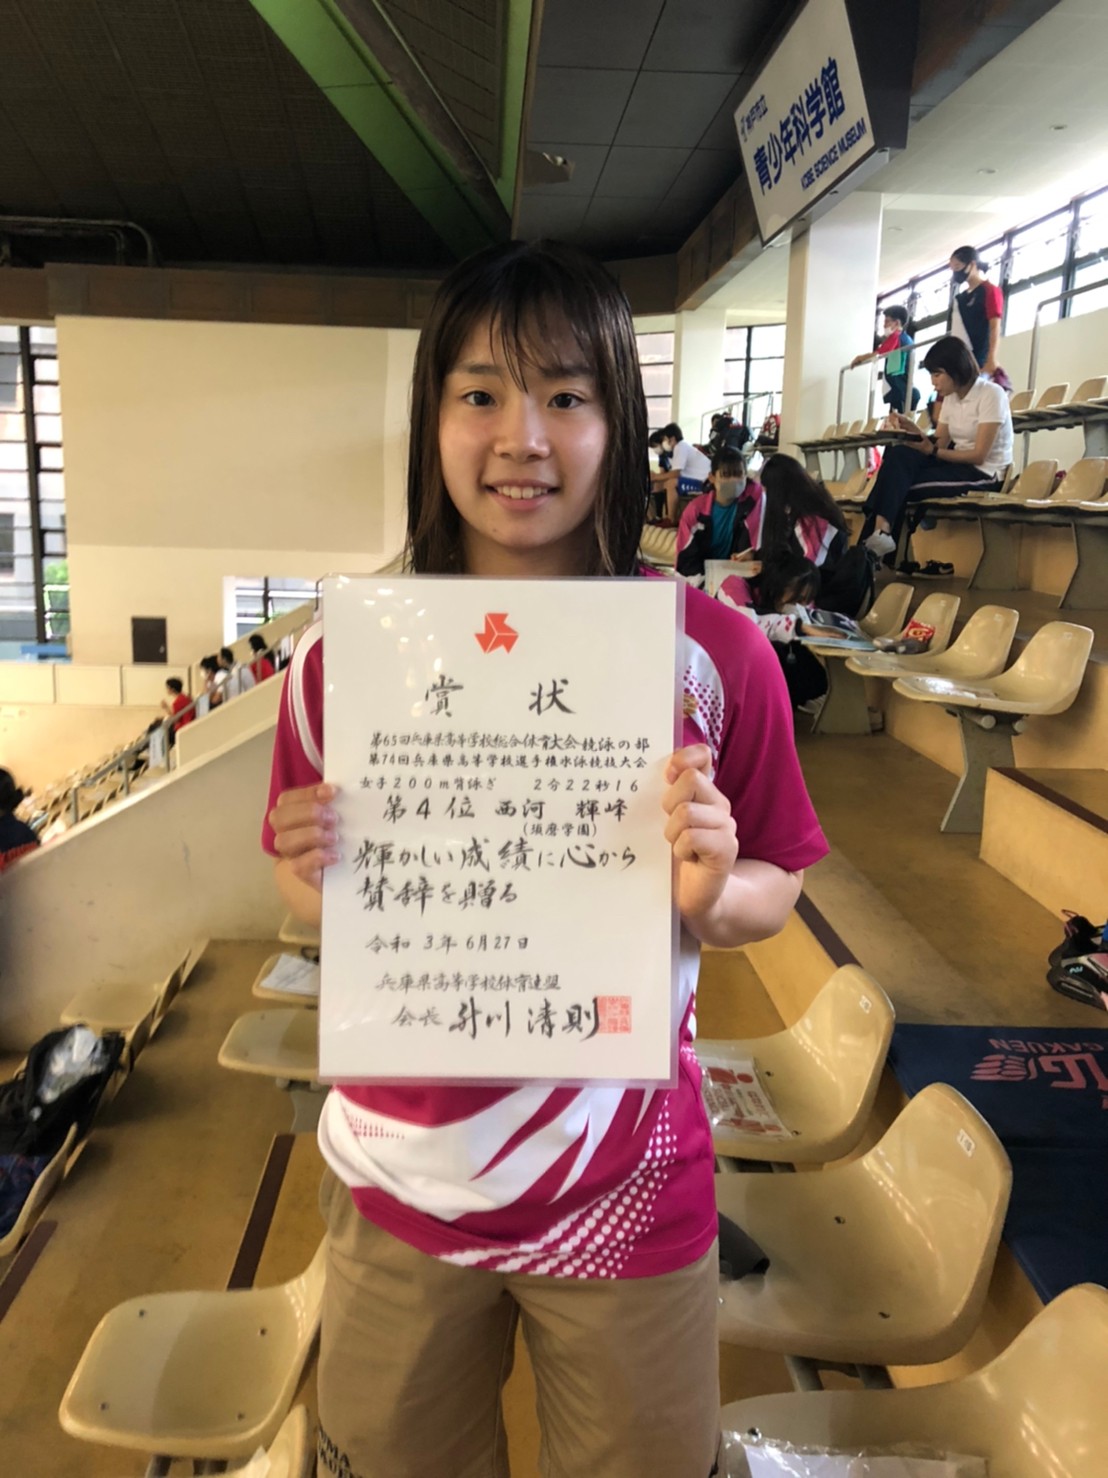 神戸市立
青少年科学館
KOBE SCIENCE MUSEUM
賞 状
第65回兵庫県高等学校総合体育大会競泳の部
第74回兵庫県高等学校選手権水泳競技大会
女子200m背泳ぎ 2分22秒16
第4位 西河 輝峰
(須磨学園)
輝かしい成績に心から
賛辞を贈る
令和 3年 6月27日
兵庫県高等学校体育連盟
会長 升川 清則
GAKUEN